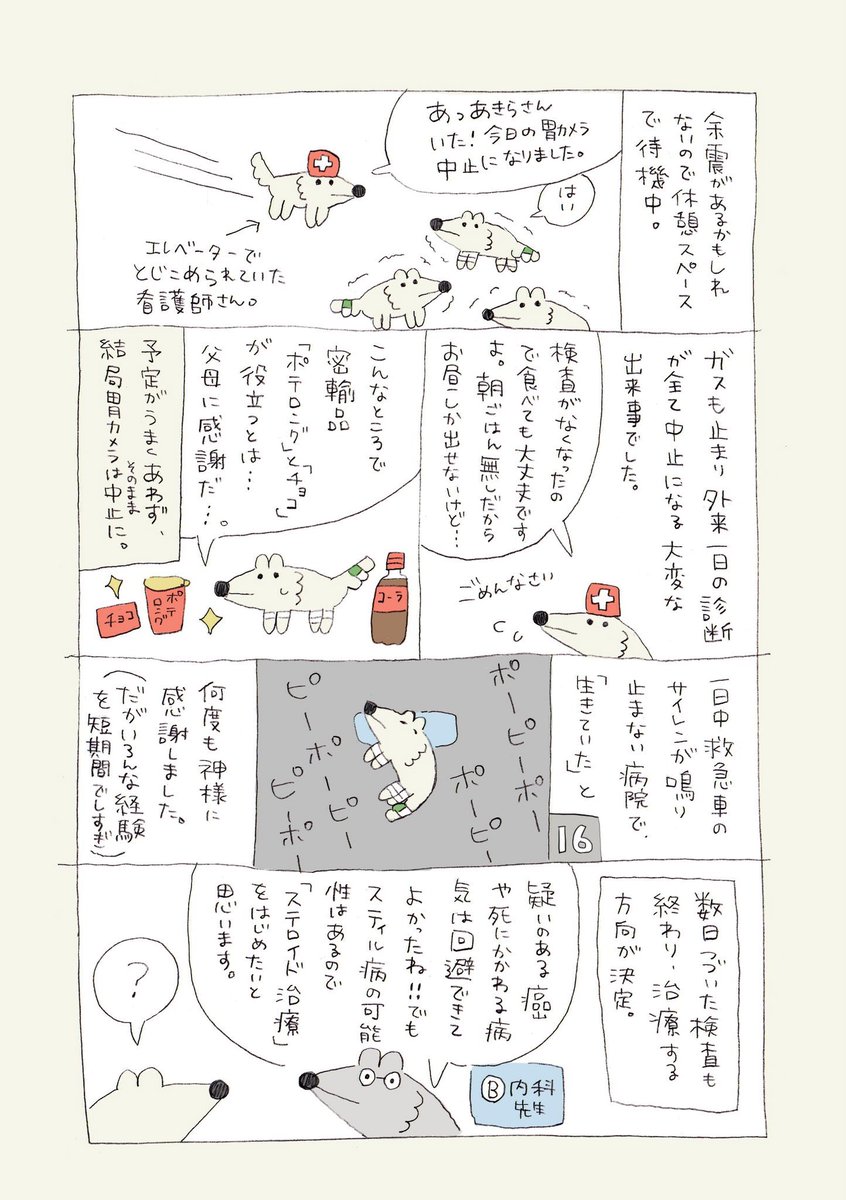 余震があるかもしれ
ないので休憩スペース
で待機中。
あっあきらさん
いた！今日の胃カメラ
中止になりました。
はい
エレベーターで
とじこめられていた
看護師さん。
ガスも止まり外来一日の診断
が全て中止になる大変な
出来事でした。
検査がなくなったの
で食べても大丈夫です
よ。朝ごはん無しだから
お昼しか出せないけど…
ごめんなさい
こんなところで
密輸品
「ポテロング」と「チョコ」
が役立つとは…
父母に感謝だ…。
チョコ
ポテ
ロング
コーラ
予定がうまくあわず、
そのまま
結局胃カメラは中止に。
一日中救急車の
サイレンが鳴り
止まない病院で、
「生きていた」と
16
ポーピーポー
ポーピー
ピーポーピー
ピーポー
何度も神様に
感謝しました。
（だがいろんな経験
を短期間でしすぎ）
数日つづいた検査も
終わり、治療する
方向が決定。
疑いのある癌
や死にかかわる病
気は回避できて
よかったね!!でも
スティル病の可能
性はあるので
「ステロイド治療」
をはじめたいと
思います。
B内科
先生
？